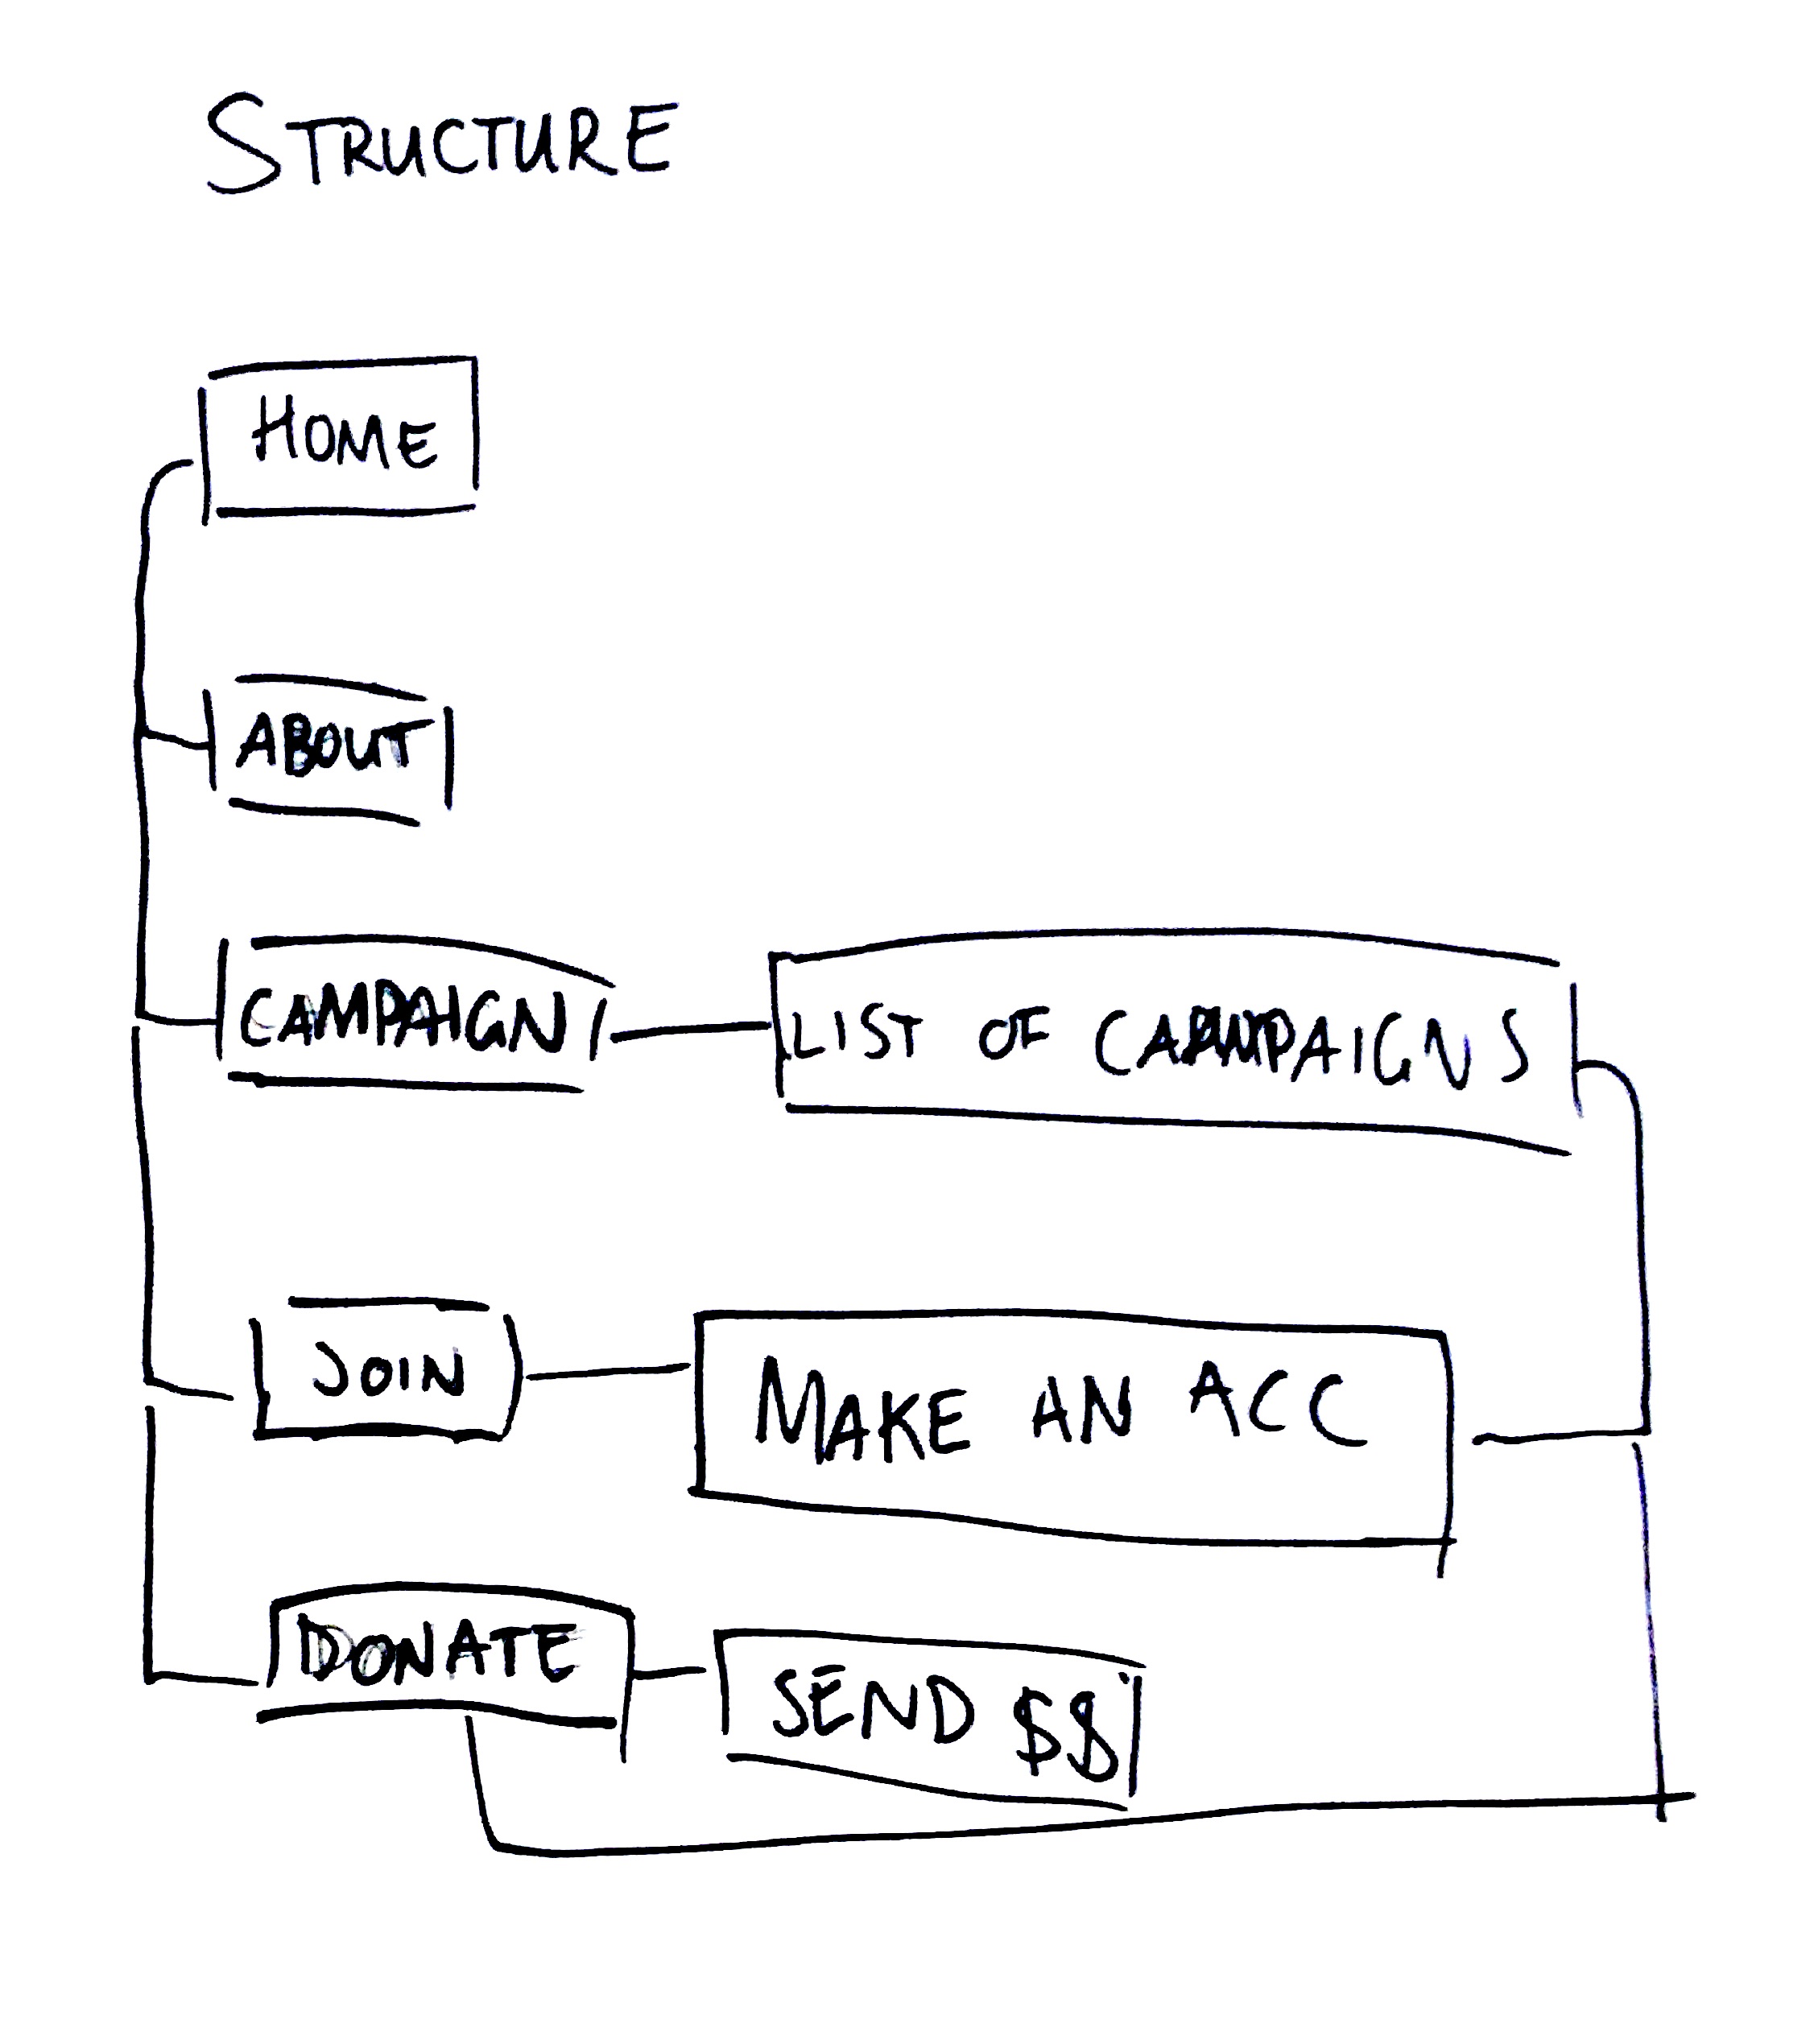 STRUCTURE
HOME
ABOUT
CAMPAIGN
LIST OF CAMPAIGNS
JOIN
MAKE AN ACC
DONATE
SEND $$